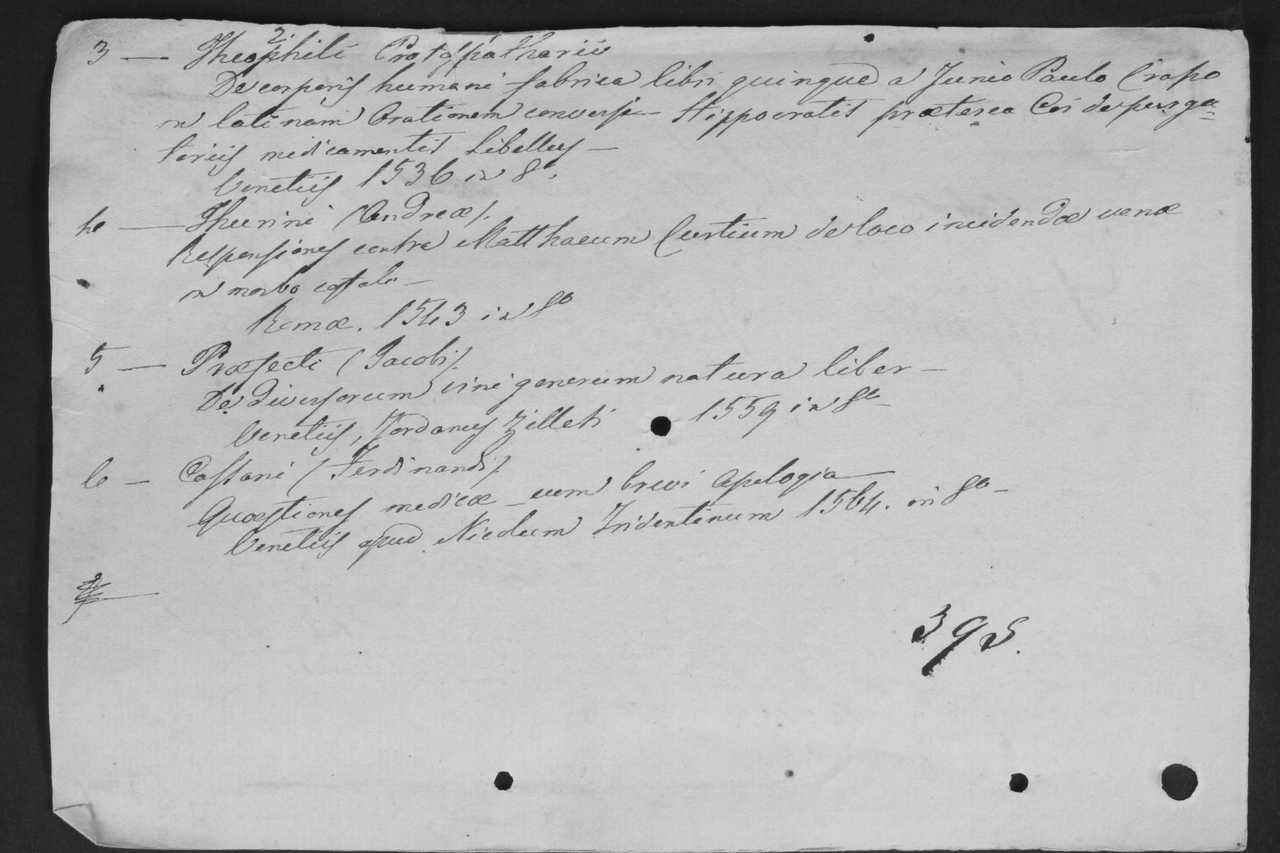 2
3 — Theophili Protospatharii
De corporis humani fabrica libri quinque a Junio Paulo Crasso
in latinam Orationem conversi — Hippocratis præterea Coi de purga=
toriis medicamentis Libellus —
Venetiis 1536 in 8º.
4 — Thurini (Andreæ).
Responsiones contra Matthaeum Curtium de loco incidendæ venæ
in morbo costali —
Romæ. 1543 in 8º
5 — Præfecti (Jacobi).
De diversorum vini generum natura liber —
Venetiis, Jordanus Zilleti 1559 in 8º —
6 — Cassani (Ferdinandi)
Quæstiones medicæ cum brevi Apologia —
Venetiis apud Nicolaum Tridentinum 1564. in 8º —
395.